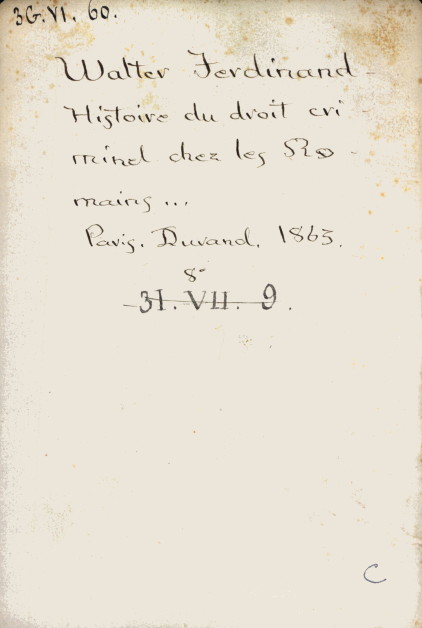 3G.VI. 60.
Walter Ferdinand -
Histoire du droit cri -
minel chez les Ro -
mains...
Paris. Durand. 1863.
8º
31. VII. 9.
C